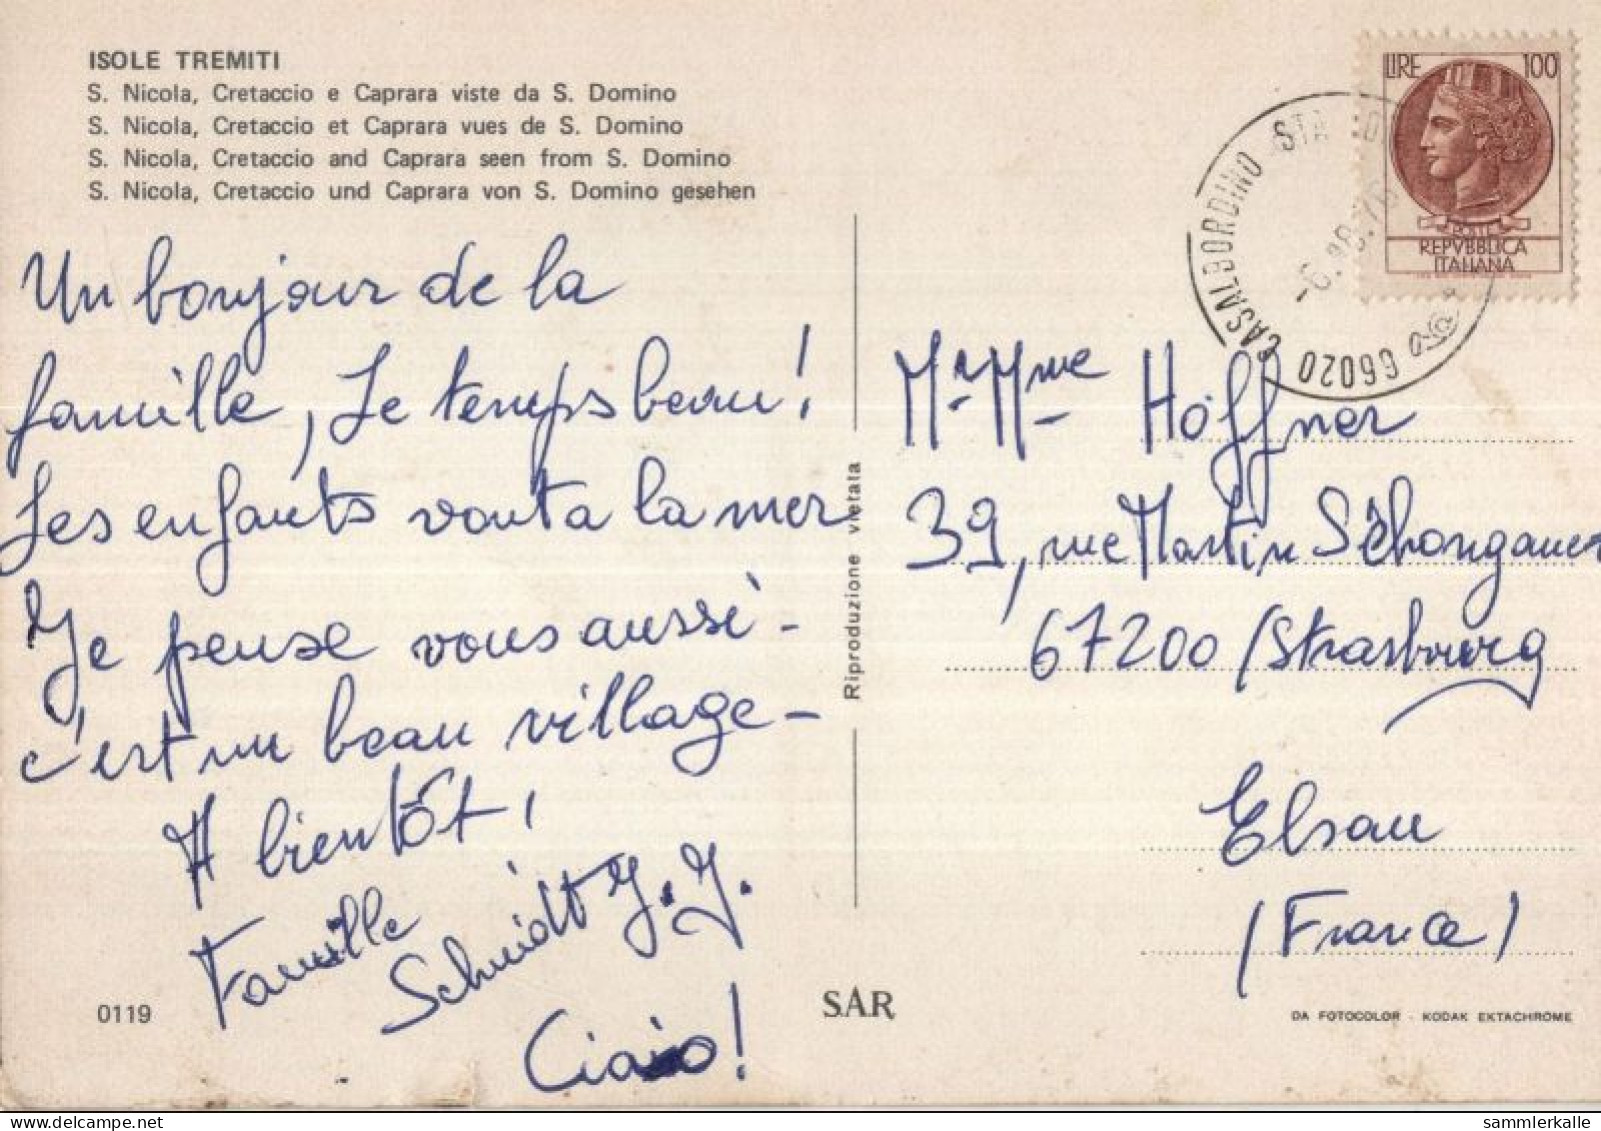 ISOLE TREMITI
S. Nicola, Cretaccio e Caprara viste da S. Domino
S. Nicola, Cretaccio et Caprara vues de S. Domino
S. Nicola, Cretaccio and Caprara seen from S. Domino
S. Nicola, Cretaccio und Caprara von S. Domino gesehen
Un bonjour de la
famille, Le temps beau!
Les enfants vont a la mer
Je pense vous aussi -
c'est un beau village -
A bientôt,
Famille
Schmidt J. J.
Ciao!
0119
Riproduzione vietata
SAR
LIRE 100
POSTE
REPVBBLICA
ITALIANA
66020 CASALBORDINO STA
-6.08.76
Mr Mme Höffner
39, rue Martin Schongauer
67200 / Strasbourg
Elsau
(France)
DA FOTOCOLOR - KODAK EKTACHROME
sammlerkalle